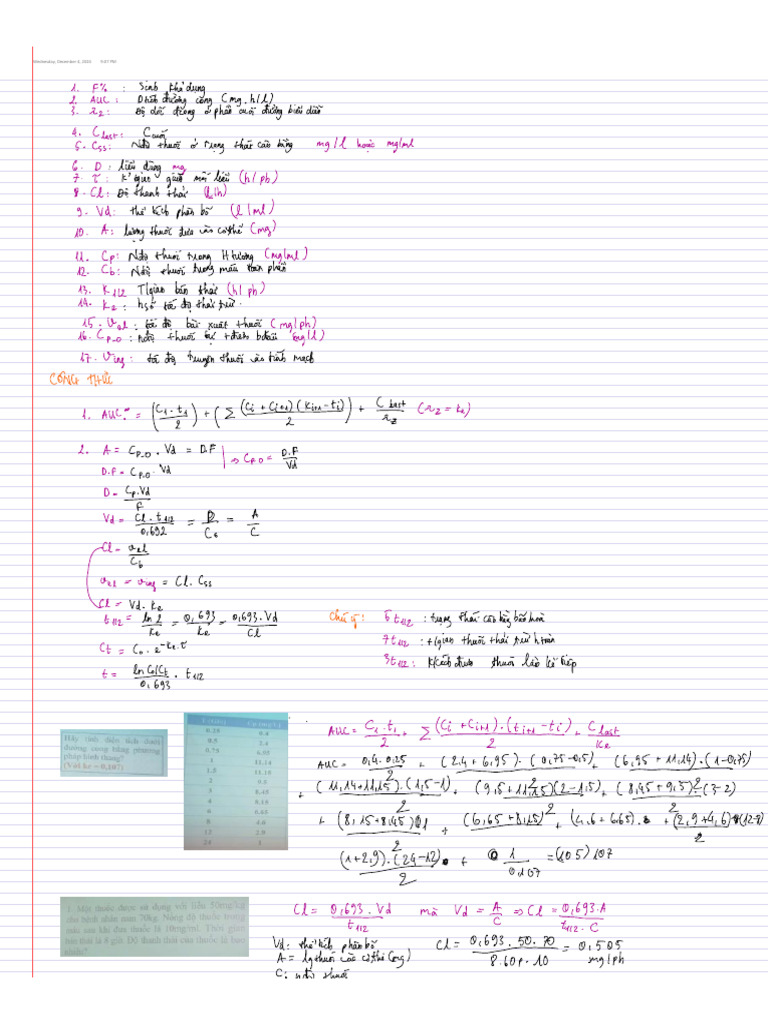 Wednesday, December 4, 2024 5:07 PM
1. F% : Sinh khả dụng
2. AUC : Diện đường cong (mg.h/l)
3. λz : Độ dốc đường ở phần cuối đường biểu diễn
4. Clast : Ccuối
5. Css : Nđộ thuốc ở trạng thái cân bằng mg/l hoặc mg/ml
6. D : liều dùng mg
7. τ : K/gian giữa mỗi liều (h/ph)
8. Cl : Độ thanh thải (l/h)
9. Vd : thể tích phân bố (l/ml)
10. A : lượng thuốc đưa vào cơ thể (mg)
11. Cp : Nđộ thuốc trong H tương (mg/ml)
12. Cb : Nđộ thuốc trong máu toàn phần
13. K1/2 T/gian bán thải (h/ph)
14. Ke : hsố tốc độ thải trừ.
15. Vel : tốc độ bài xuất thuốc (mg/ph)
16. Cp.0 : nđộ thuốc tại tđiểm bđầu (mg/l)
17. Vinj : tốc độ truyền thuốc vào tĩnh mạch
CÔNG THỨC
1. AUC∞ = (C1.t1/2) + (Σ (Ci + Ci+1)(ti+1 - ti)/2) + Clast/λz (λz = ke)
2. A = Cp.0 . Vd = D.F | => Cp.0 = D.F/Vd
D.F = Cp.0 . Vd
D = Cp.Vd/F
Vd = Cl.t1/2/0,692 = D/C0 = A/C
Cl = vel/Cb
vel = vinj = Cl.Css
Cl = Vd.Ke
t1/2 = ln2/Ke = 0,693/Ke = 0,693.Vd/Cl
Chú ý: 5 t1/2 : trạng thái cân bằng bão hoà
7 t1/2 : t/gian thuốc thải trừ h toàn
3 t1/2 : K/cách đưa thuốc lần kế tiếp
Ct = C0.e^-ke.τ
t = ln C0/Ct / 0,693 . t1/2
Hãy tính diện tích dưới
đường cong bằng phương
pháp hình thang?
(Với ke = 0,107)
0.25 0.4
0.5 2.4
0.75 6.95
1 11.14
1.5 11.15
2 9.5
3 8.45
4 8.15
6 6.65
8 4.6
12 2.9
24 1
AUC = C1.t1/2 + Σ (Ci + Ci+1).(ti+1 - ti)/2 + Clast/Ke
AUC = 0,4.0,25/2 + (2,4 + 6,95).(0,75-0,5)/2 + (6,95 + 11,14).(1-0,75)/2
+ (11,14+11,15).(1,5-1)/2 + (9,5+11,15)(2-1,5)/2 + (8,45+9,5)(3-2)/2
+ (8,15+8,45).1/2 + (6,65+8,15)2/2 + (4,6+6,65).2/2 + (2,9+4,6)(12-8)/2
+ (1+2,9).(24-12)/2 + 1/0,107 = (105)107
1. Một thuốc được sử dụng với liều 50mg/kg
cho bệnh nhân nam 70kg. Nồng độ thuốc trong
máu sau khi đưa thuốc là 10mg/ml. Thời gian
bán thải là 8 giờ. Độ thanh thải của thuốc là bao
nhiêu?
Cl = 0,693.Vd/t1/2 mà Vd = A/C => Cl = 0,693.A/t1/2.C
Vd : thể tích phân bố
A = lg thuốc vào cơ thể (mg)
C : nđộ thuốc
Cl = 0,693.50.70/8.60p.10 = 0,505 mg/ph